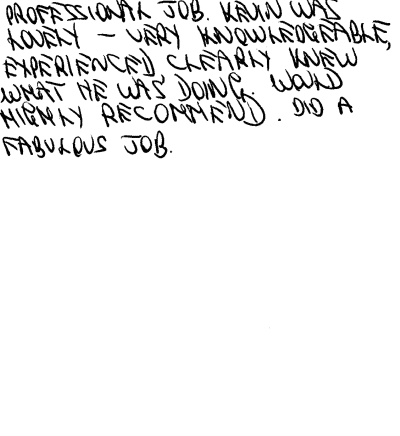 PROFESSIONAL JOB. KEVIN WAS
LOVELY - VERY KNOWLEDGEABLE,
EXPERIENCED CLEARLY KNEW
WHAT HE WAS DOING. WOULD
HIGHLY RECOMMEND. DID A
FABULOUS JOB.